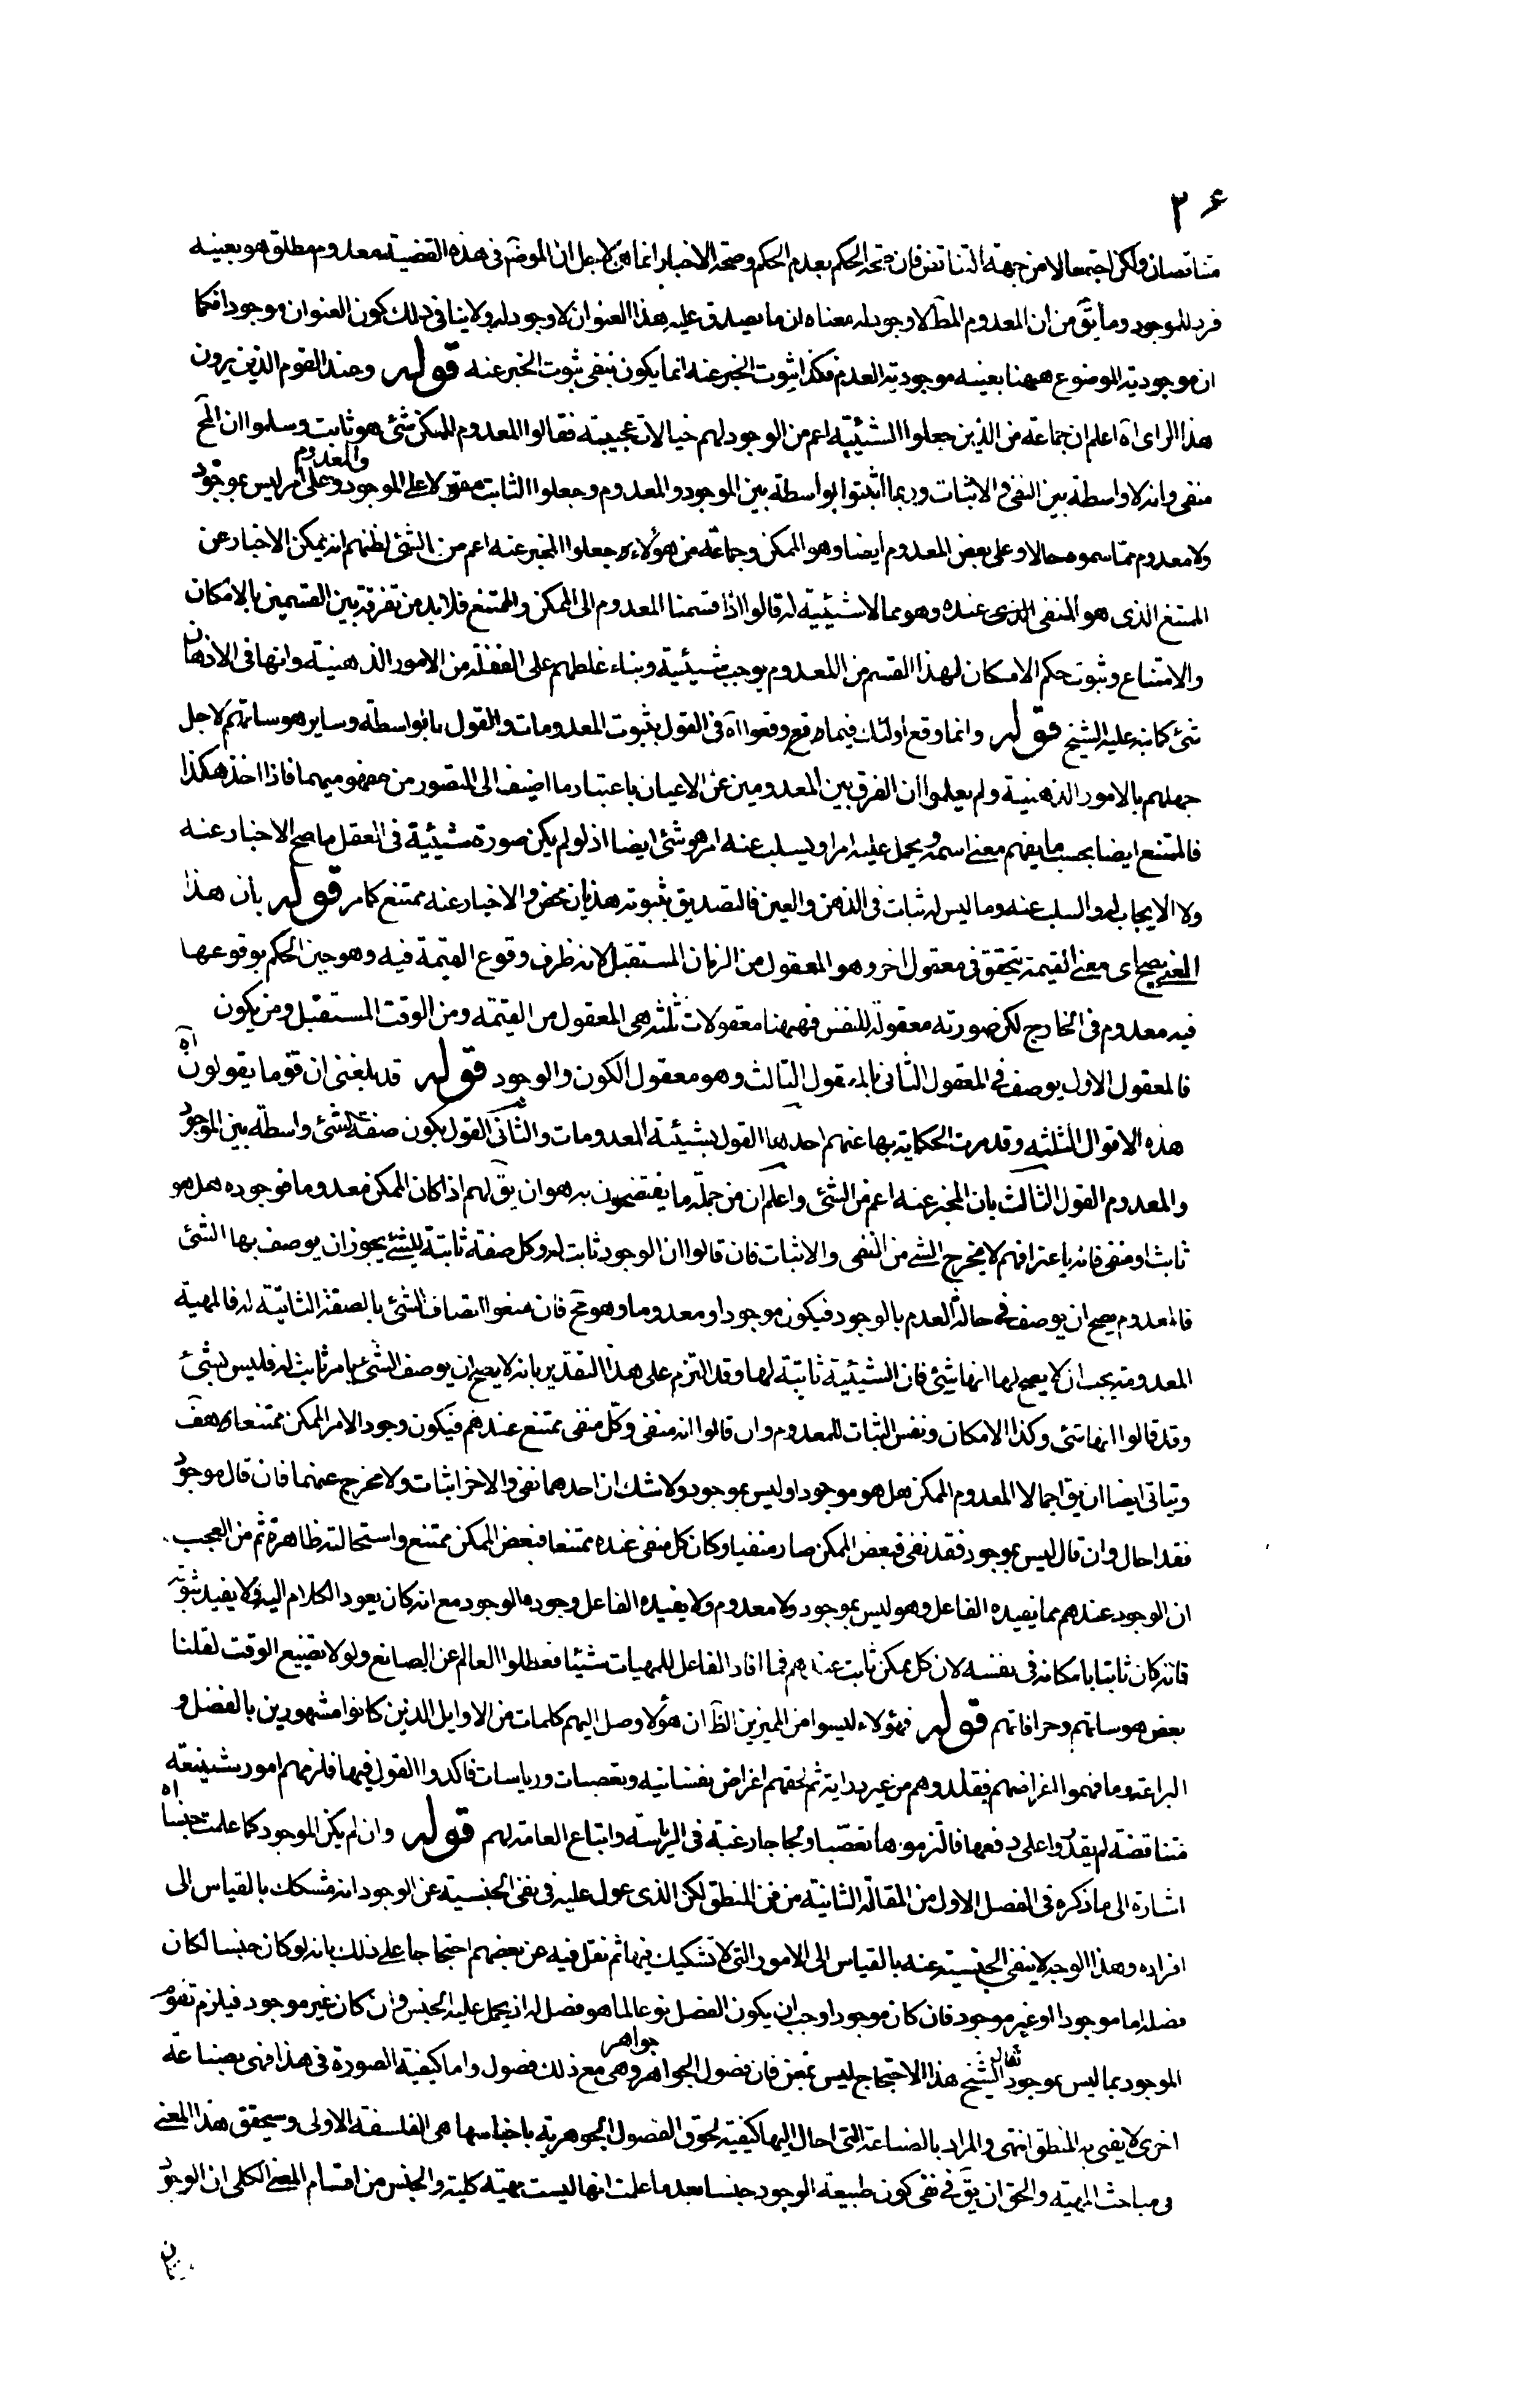 ٢٤
متناقضان ولكن اجتمعا لا من جهة التناقض فان صحة الحكم بعدم الحكم وصحة الاخبار انما هي لاجل ان الموضوع في هذه القضية معدوم مطلق هو بعينه
فرد للموجود وما يق من ان المعدوم المط لا وجود له معناه ان ما يصدق عليه هذا العنوان لا وجود له ولا ينافي ذلك كون العنوان موجودا فكما
ان موجودية الموضوع ههنا بعينه موجودية العدم فكذا ثبوت الخبر عنه انما يكون بنفى ثبوت الخبر عنه قوله وعند القوم الذين يرون
هذا الراى اه اعلم ان جماعة من الذين جعلوا الشيئية اعم من الوجود لهم خيالات عجيبة فقالوا المعدوم الممكن شئ هو ثابت وسلموا ان المح
منفى وانه لا واسطة بين النفى والاثبات وربما اثبتوا واسطة بين الموجود والمعدوم وجعلوا الثابت مقولا على الموجود والمعدوم وعلى امر ليس بموجود
ولا معدوم مما سموه حالا وعلى بعض المعدوم ايضا وهو الممكن وجماعة من هؤلاء جعلوا المخبر عنه اعم من الشئ لظنهم انه يمكن الاخبار عن
الممتنع الذى هو المنفى عنده وهو مما لا شيئية له قالوا اذا قسمنا المعدوم الى الممكن والممتنع فلابد من تفرقة بين القسمين بالامكان
والامتناع وثبوت حكم الامكان لهذا القسم من المعدوم يوجب شيئيته وبناء غلطهم على الغفلة من الامور الذهنية وانها في الاذهان
شئ كما نبه عليه الشيخ قوله وانما وقع اولئك فيما وقعوا اه فى القول بثبوت المعدومات والقول بالواسطة وساير هوساتهم لاجل
جهلهم بالامور الذهنية ولم يعلموا ان الفرق بين المعدومين عن الاعيان باعتبار ما اضيف الى المتصور من مفهوميهما فاذا اخذ هكذا
فالممتنع ايضا بحسب ما يفهم معنى اسمه ويحمل عليه امر او يسلب عنه امر هو شئ ايضا اذ لو لم يكن صورة شيئية فى العقل ما صح الاخبار عنه
ولا الايجاب له والسلب عنه وما ليس له ثبات فى الذهن والعين فالتصديق بثبوته هذيان محض والاخبار عنه ممتنع كما مر قوله بان هذا
المعنى يصح اى معنى القيمة يتحقق في معقول اخر وهو المعقول من الزمان المستقبل لانه ظرف وقوع القيمة فيه وهو حين الحكم بوقوعها
فيه معدوم فى الخارج لكن صورته معقولة للنفس فههنا معقولات ثلثة هى المعقول من القيمة ومن الوقت المستقبل ومن يكون
فالمعقول الاول يوصف فى المعقول الثانى بالمعقول الثالث وهو معقول الكون والوجود قوله قد بلغنى ان قوما يقولون اه
هذه الاقوال الثلثة وقد مرت الحكاية بها عنهم احدها القول بشيئية المعدومات والثانى القول بكون صفة الشئ واسطة بين الموجود
والمعدوم القول الثالث بان المخبر عنه اعم من الشئ واعلم ان من جملة ما يفتضحون به هو ان يق لهم اذا كان الممكن معدوما فوجوده هل هو
ثابت او منفى فانه باعترافهم لا يخرج الشئ من النفى والاثبات فان قالوا ان الوجود ثابت له وكل صفة ثابتة للشئ يجوز ان يوصف بها الشئ
فالمعدوم يصح ان يوصف فى حالة العدم بالوجود فيكون موجودا ومعدوما وهو مح فان منعوا اتصاف الشئ بالصفة الثابتة له فالمهية
المعدومة يجب ان لا يصح لها انها شئ فان الشيئية ثابتة لها وقد التزم على هذا التقدير بانه لا يصح ان يوصف الشئ بامر ثابت له فليس بشئ
وقد قالوا انها شئ وكذا الامكان ونفس الثبات للمعدوم وان قالوا انه منفى وكل منفى ممتنع عندهم فيكون وجود الامر الممكن ممتنعا هف
ويتاتى ايضا ان يق اجمالا المعدوم الممكن هل هو موجود او ليس بموجود ولا شك ان احدهما نفى والاخر اثبات ولا مخرج عنهما فان قال موجود
فقد احال وان قال ليس بموجود فقد نفى فبعض الممكن صار منفيا وكان كل منفى عنده ممتنعا فبعض الممكن ممتنع واستحالته ظاهرة ثم من العجب
ان الوجود عندهم مما يفيده الفاعل وهو ليس بموجود ولا معدوم ولا يفيده الفاعل وجود الوجود مع انه كان يعود الكلام اليه ولا يفيد ثبوته
فانه كان ثابتا بامكانه فى نفسه لان كل ممكن ثابت عندهم فما افاد الفاعل للمهيات شيئا فعطلوا العالم عن الصانع ولولا تضييع الوقت لقلنا
بعض هوساتهم وخرافاتهم قوله فهؤلاء ليسوا من المميزين الظ ان هؤلا وصل اليهم كلمات من الاوايل الذين كانوا مشهورين بالفضل و
البراعة وما فهموا اغراضهم فقلدوهم من غير دراية ثم لحقهم اغراض نفسانيه وتعصبات ورياسات فاكدوا القول فيها فلزمهم امور شنيعة
متناقضة لم يقدروا على دفعها فالتزموها تعصبا ولجاجا رغبة فى الرياسة واتباع العامة لهم قوله وان لم يكن الموجود كما علمت جنسا اه
اشارة الى ما ذكره فى الفصل الاول من المقالة الثانية من فن المنطق لكن الذى عول عليه فى نفى الجنسية عن الوجود انه مشكك بالقياس الى
افراده وهذا الوجه لا ينفى الجنسية عنه بالقياس الى الامور التى لا تشكيك فيها ثم نقل فيه عن بعضهم احتجاجا على ذلك بانه لو كان جنسا لكان
فصله اما موجودا او غير موجود فان كان موجودا وجب ان يكون الفصل نوعا لما هو فصل له اذ يحمل عليه الجنس وان كان غير موجود فيلزم تقوم
الموجود بما ليس بموجود قال الشيخ هذا الاحتجاج ليس بمغن فان فصول الجواهر جواهر وهى مع ذلك فصول واما كيفية الصورة فى هذا فهى بصناعة
اخرى لا يفى به المنطق انتهى والمراد بالصناعة التى احال اليها كيفية لحوق الفصول الجوهرية باجناسها هى الفلسفة الاولى وسيحقق هذا المعنى
فى مباحث المهية والحق ان يق فى نفى كون طبيعة الوجود جنسا بعد ما علمت انها ليست مهية كلية والجنس من اقسام المعنى الكلى ان الوجود